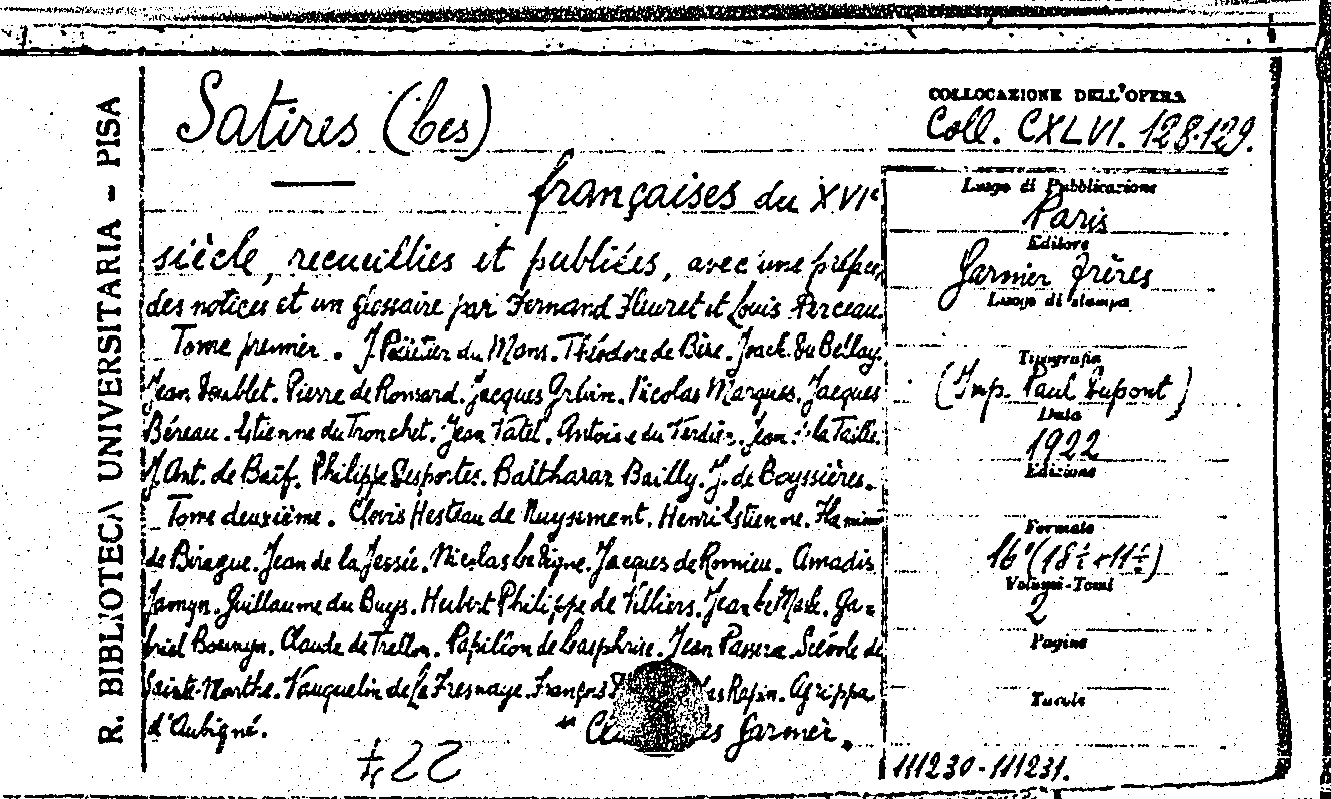 R. BIBLIOTECA UNIVERSITARIA - PISA
Satires (Les)
françaises du XVIe
siècle, recueillies et publiées, avec une préface,
des notices et un glossaire par Fernand Fleuret et Louis Perceau
Tome premier. J. Peletier du Mans. Théodore de Bèze. Joach. Du Bellay.
Jean Doublet. Pierre de Ronsard. Jacques Grévin. Nicolas Marques. Jacques
Béreau. Estienne du Tronchet. Jean Vatel. Antoine du Verdier. Jean de la Taille.
J. Ant. de Baïf. Philippe Desportes. Balthazar Bailly. J. de Boyssières.
Tome deuxième. Clovis Hesteau de Nuysement. Henri Estienne. Flaminio
de Birague. Jean de la Jessée. Nicolas Le Digne. Jacques de Romieu. Amadis
Jamyn. Guillaume du Buys. Hubert Philippe de Villiers. Jean Le Masle. Ga-
briel Bounyn. Claude de Trellon. Papillon de Lasphrise. Jean Passerat. Scévole de
Sainte-Marthe. Vauquelin de la Fresnaye. François Rapin. Agrippa
d'Aubigné.
Garnier.
422
COLLOCAZIONE DELL'OPERA
Coll. CXLVI. 128-129.
Luogo di Pubblicazione
Paris
Editore
Garnier frères
Luogo di stampa
Tipografia
(Imp. Paul Dupont)
Data
1922
Edizione
Formato
16° (18½ × 11½)
Volumi-Tomi
2
Pagine
Tavole
111230-111231.